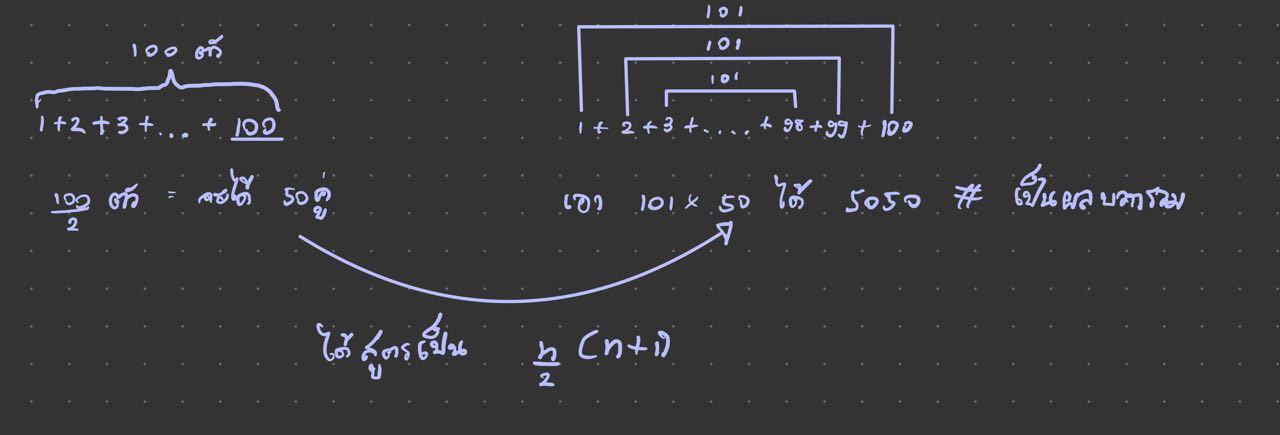 100 ตัว
1+2+3+...+ 100
100/2 ตัว = จะได้ 50 คู่
101
101
101
1 + 2 + 3 + ..... + 98 + 99 + 100
เอา 101 × 50 ได้ 5050 # เป็นผลบวกรวม
ได้สูตรเป็น n/2 (n+1)